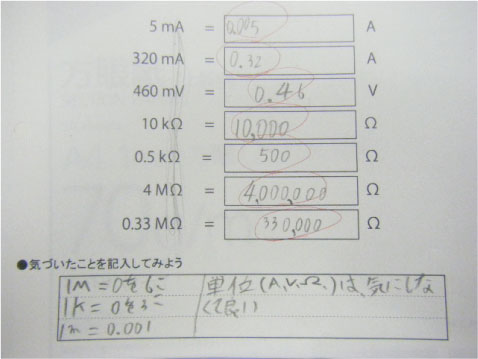 5 mA = 0.005 A
320 mA = 0.32 A
460 mV = 0.46 V
10 kΩ = 10,000 Ω
0.5 kΩ = 500 Ω
4 MΩ = 4,000,000 Ω
0.33 MΩ = 330,000 Ω
●気づいたことを記入してみよう
1M=0を6こ
1K=0を3こ
1m=0.001
単位(A、V、Ω、)は、気にしな
くて良い)